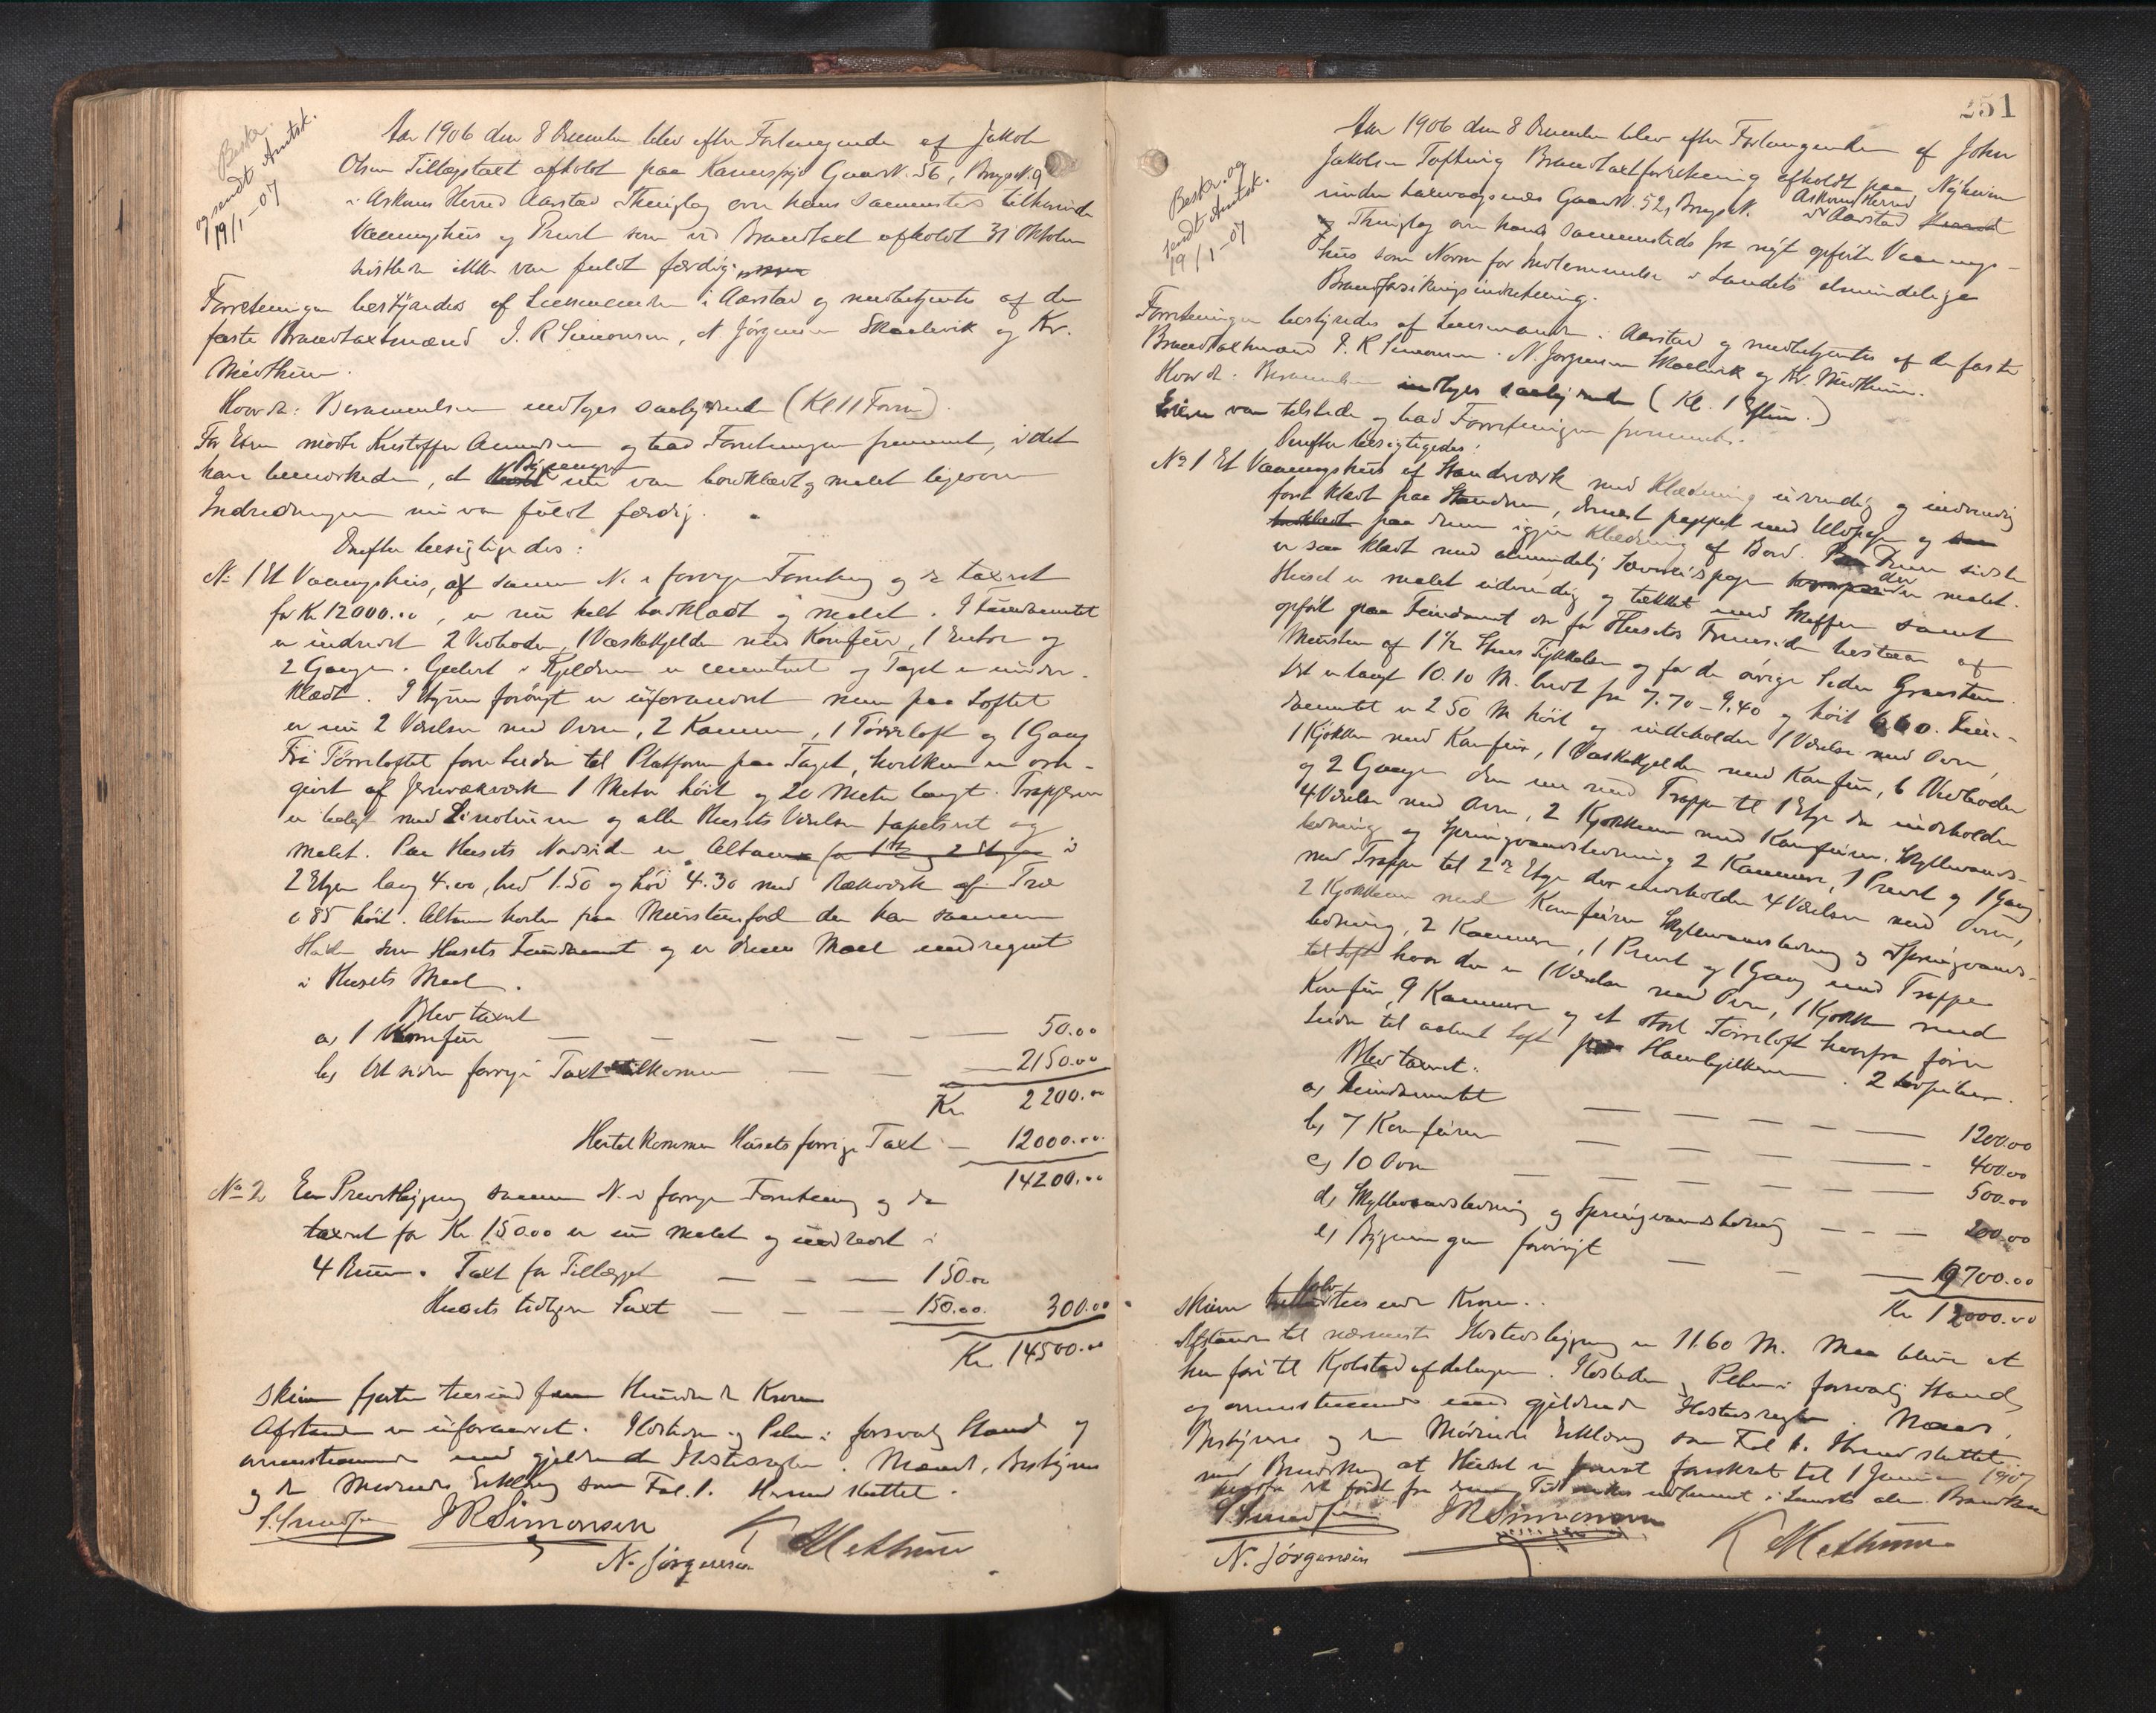 Beskr.
og sendt Amtsk.
19/1-07
Aar 1906 den 8 December blev efter Forlangende af Jakob
Olsen Tillægstaxt afholdt paa Gaards N. 56, Brugs N. 9
i Askøens Herred Aarstad Thinglag over hans sammesteds tilhørende
Vaaningshus og Privet som ved Brandtaxt afholdt 31 Oktober
sidstleden ikke var fuldt færdig.
Forretningen bestyredes af Lensmanden i Aarstad og medbetjentes af de
faste Brandtaxtmænd J. R Simonsen, N Jørgensen Skaalevik og Kr.
Midthun.
Hvorda: Berammelsen endlyes saalydende (Kl 11 Form).
For Eieren mødte Kristoffer Amundsen og bad Forretningen fremmet, idet
han bemærkede, at Bygningen nu var bordklædt og malet ligesom
Indredningen nu var fuldt færdig.
Derefter besigtigedes:
No 1 Et Vaaningshus, af samme N. i forrige Forretning og da taxeret
for Kr 12000.00, er nu helt bordklædt og malet. I Fundamentet
er indredet 2 Vedboder, 1 Vaskekjelder med Komfur, 1 Entre og
2 Gange. Gulvet i Kjelderen er cementeret og Taget er under-
klædt. I Etagerne forøvrigt er uforandret men paa Loftet
er nu 2 Værelser med Ovne, 2 Kammer, 1 Tørreloft og 1 Gang
Fra Tørreloftet fører Leder til Platform paa Taget, hvilken er om-
givet af Jernrækværk 1 Meter høit og 20 Meter langt. Trapperne
er belagt med Linoleum og alle Husets Værelser tapetseret og
malet. Paa Husets Nordside er Altan for 1ste og 2 Etage i
2 Etagen lang 4.00, bred 1.50 og høi 4.30 med Rækværk af Træ
0.85 høit. Altanen hviler paa Murstensfod der har samme
Høide som Husets Fundament og er denne Maal medregnet
i Husets Maal.
Blev taxeret
a, 1 Komfur — — — — — 50.00
b, Det siden forrige Taxt tilkomne — — — 2150.00
Kr. 2200.00
Hertil kommer Husets forrige Taxt — 12000.00
14200.00
No 2 En Privetbygning samme N. i forrige Forretning og da
taxeret for Kr. 150.00 er nu malet og indredet i
4 Rum. Taxt for Tillægget — — — 150.00
Husets tidligere Taxt — — — 150.00 300.00
Kr. 14500.00
skriver fjorten tusind fem Hundrede Kroner
Afstanden er uforandret. Ildsteder og Piber i forsvarlig Stand og
overensstemmende med gjældende Ildstedsregler. Mænd, Bestyrer
og den Mødende Erklæring som Fol. 1. Hermed sluttet.
J R Simonsen
N. Jørgensen
K Midthun
251
Beskr. og
sendt Amtsk.
19/1-07
Aar 1906 den 8 December blev efter Forlangende af John
Jakobsen Toftevig Brandtaxtforretning afholdt paa Nyheim
under Laxevaagsnæs Gaards N. 52, Brugs N. i Askøens Herred Aarstad Herred
og Thinglag over hans sammesteds fra nyt opførte Vaanings-
hus som Norm for Indlemmelse i Landets almindelige
Brandforsikringsindretning.
Forretningen bestyredes af Lensmanden i Aarstad og medbetjentes af de faste
Brandtaxtmænd J. R Simonsen. N. Jørgensen Skaalevik og Kr. Midthun.
Hvorda: Berammelsen endlyes saalydende (Kl. 1 Efterm.)
Eieren var tilstede og bad Forretningen fremmet.
Derefter besigtigedes:
No 1 Et Vaaningshus af Standerværk med Klædning udvendig og indvendig
først klædt paa Standeren, dernæst pappet med Uldpap og
paa denne igjen Klædning af Bord. Denne sidste
er saa klædt med almindelig Panelpap der er malet.
Huset er malet udvendig og tækket med Skiffer samt
opført paa Fundament der for Husets Forreside bestaar af
Mursten af 1 1/2 Stens Tykkelse og for de øvrige Sider Graasten.
Det er langt 10.10 M. bredt fra 7.70 - 9.40 og høit 6.60. Fun-
damentet er 2.50 M høit og indeholder 1 Værelse med Ovn,
1 Kjøkken med Komfur, 1 Vaskekjelder med Komfur, 6 Vedboder
og 2 Gange den ene med Trappe til 1 Etage der indeholder
4 Værelser med Ovne, 2 Kjøkkener med Komfurer. Skyllevands-
ledning og Springvandsledning 2 Kammere, 1 Privet og 1 Gang
med Trappe til 2de Etage der indeholder 4 Værelser med Ovne,
2 Kjøkkener med Komfurer Skyllevandsledning og Springvands-
ledning, 2 Kammere, 1 Privet og 1 Gang med Trappe
til Loft hvor der er 1 Værelse med Ovn, 1 Kjøkken med
Komfur, 9 Kammere og et stort Tørreloft hvorfra fører
Leder til aabent Loft paa Hanebjelkerne. 2 Løbpiber.
Blev taxeret.
a, Fundamentet — — — — 1200.00
b, 7 Komfurer — — — — 400.00
c, 10 Ovne — — — — — 500.00
d, Skyllevandsledning og Springvandsledning — — — 200.00
e, Bygningen forøvrigt — — — 9700.00
Kr 12000.00
skriver tolv tusende Kroner.
Afstanden til nærmeste Ildstedsbygning er 11.60 M. Maa blive at
henføre til Kjølstad afdelingen. Ildsteder, Piber i forsvarlig Stand
og overensstemmende med gjældende Ildstedsregler. Mænd,
Bestyrer og den Mødende Erklæring som Fol 1. Hermed sluttet.
med Bemærkning at Huset er privat forsikret til 1 Januar 1907
udmeldt i Landets alm. Brandkasse
J R Simonsen
N. Jørgensen
K Midthun